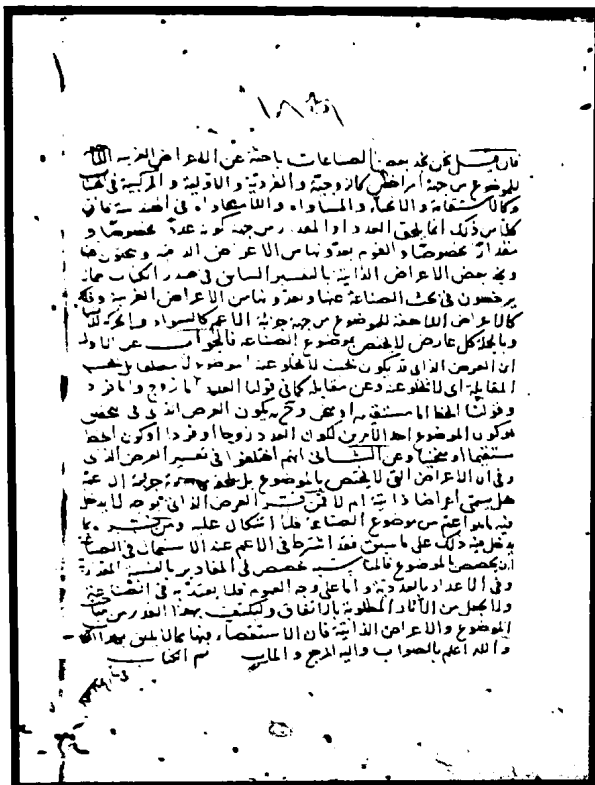 ١٨٩٩
فان قيل نحن نجد بعض الصناعات باحثة عن الاعراض الغريبة
للموضوع من جهة امر اخص كالزوجية والفردية والاولية والمركبية في الحساب
وكالاستقامة والانحناء والمساواة واللامساواة في الهندسة فان
كلا من ذلك انما يلحق العدد او المقدار من جهة كونه عددا مخصوصا او
مقدارا مخصوصا والقوم يعدونها من الاعراض الذاتية ويبحثون عنها
ونجد بعض الاعراض الذاتية بالتفسير السابق في صدر الكتاب مما
يرفضون في بحث الصناعة عنها ويعدونها من الاعراض الغريبة وذلك
كالاعراض اللاحقة للموضوع من جهة جزئه الاعم كالسواد والحركة
وبالجملة كل عارض لا يختص بموضوع الصناعة فالجواب عن الاول
ان العرض الذاتي قد يكون بحيث لا يخلو عنه الموضوع بحسب
المقابلة اي لا يخلو عنه وعن مقابله كما في قولنا العدد اما زوج واما فرد
وقولنا الخط اما مستقيم او منحن وح يكون العرض الذاتي
هو كون الموضوع احد الامرين ككون العدد زوجا او فردا او كون الخط
مستقيما او منحنيا وعن الثاني انهم اختلفوا في تفسير العرض الذاتي
وفي ان الاعراض التي لا يختص بالموضوع بل جزئه الاعم
هل يسمى اعراضا ذاتية ام لا فمن فسر العرض الذاتي بوجه لا يدخل
فيه ما هو اعم من موضوع الصناعة فلا اشكال عليه ومن فسره بما
يدخل فيه ذلك على ما سبق فقد اشترط في الاعم عند الاستعمال في الصناعة
ان يخصص بالموضوع فالمناسبة يخصص في المقادير بالمناسبة المقدارية
وفي الاعداد بالعددية واما على وجه العموم فلا يعتد به في الصناعة
ولا يجعل من الآثار المطلوبة بالاتفاق وليكتف بهذا القدر من
الموضوع والاعراض الذاتية فان الاستقصاء فيها مما لا يليق بهذا
والله اعلم بالصواب واليه المرجع والمآب تم الكتاب